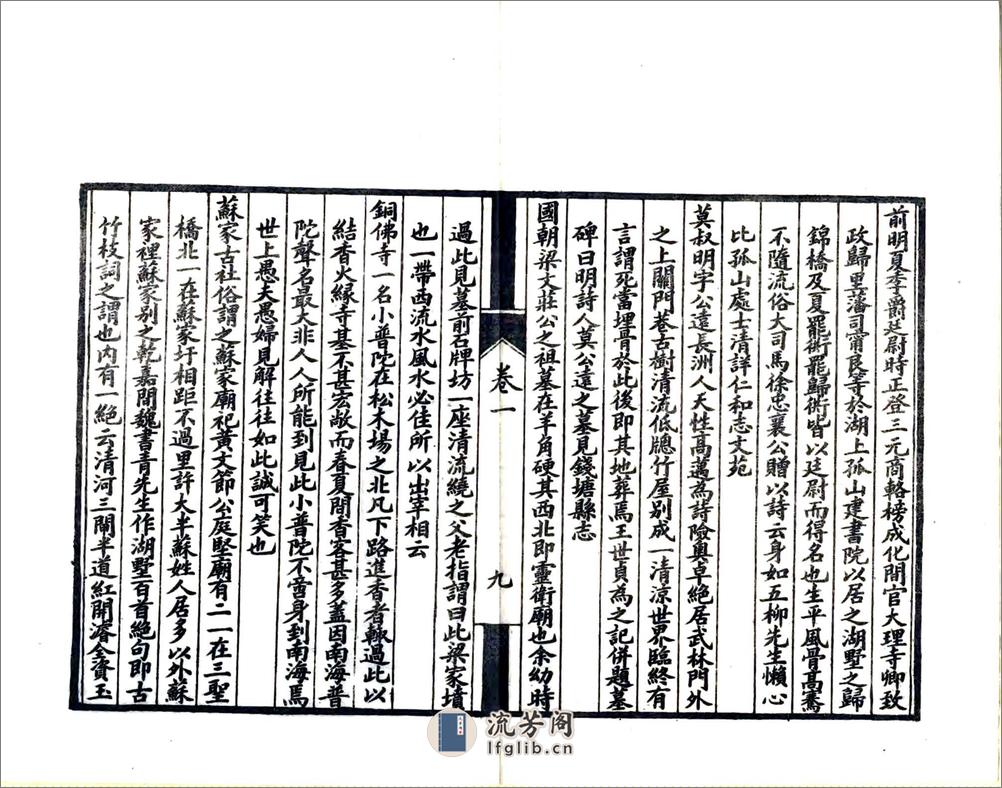 前明夏季爵廷尉時正登三元商輅榜成化間官大理寺卿致
政歸里藩司甯良等於湖上孤山建書院以居之湖墅之歸
錦橋及夏罷衙罷歸衖皆以廷尉而得名也生平風骨高騫
不隨流俗大司馬徐忠襄公贈以詩云身如五柳先生懶心
比孤山處士清詳仁和志文苑
莫叔明字公遠長洲人天性高邁為詩險奧卓絕居武林門外
之上關門巷古樹清流低牕竹屋別成一清涼世界臨終有
言謂死當埋骨於此後即其地葬焉王世貞為之記併題墓
碑曰明詩人莫公遠之墓見錢塘縣志
國朝梁文莊公之祖墓在羊角硬其西北即靈衛廟也余幼時
卷一
九
過此見墓前石牌坊一座清流繞之父老指謂曰此梁家墳
也一帶西流水風水必佳所以出宰相云
銅佛寺一名小普陀在松木場之北凡下路進香者輒過此以
結香火緣寺基不甚宏敞而春夏間香客甚多蓋因南海普
陀聲名最大非人人所能到見此小普陀不啻身到南海焉
世上愚夫愚婦見解往往如此誠可笑也
蘇家古社俗謂之蘇家廟祀黃文節公庭堅廟有二一在三聖
橋北一在蘇家圩相距不過里許大半蘇姓人居多以外蘇
家裡蘇家別之乾嘉間魏書青先生作湖墅百首絕句即古
竹枝詞之謂也內有一絕云清河三閘半道紅開濬全資玉
流芳阁
lfglib.cn